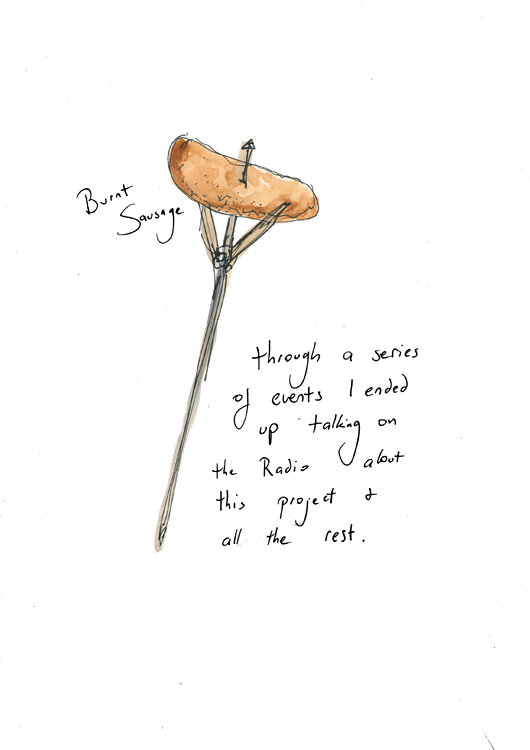 Burnt
Sausage
through a series
of events I ended
up talking on
the Radio about
this project &
all the rest.